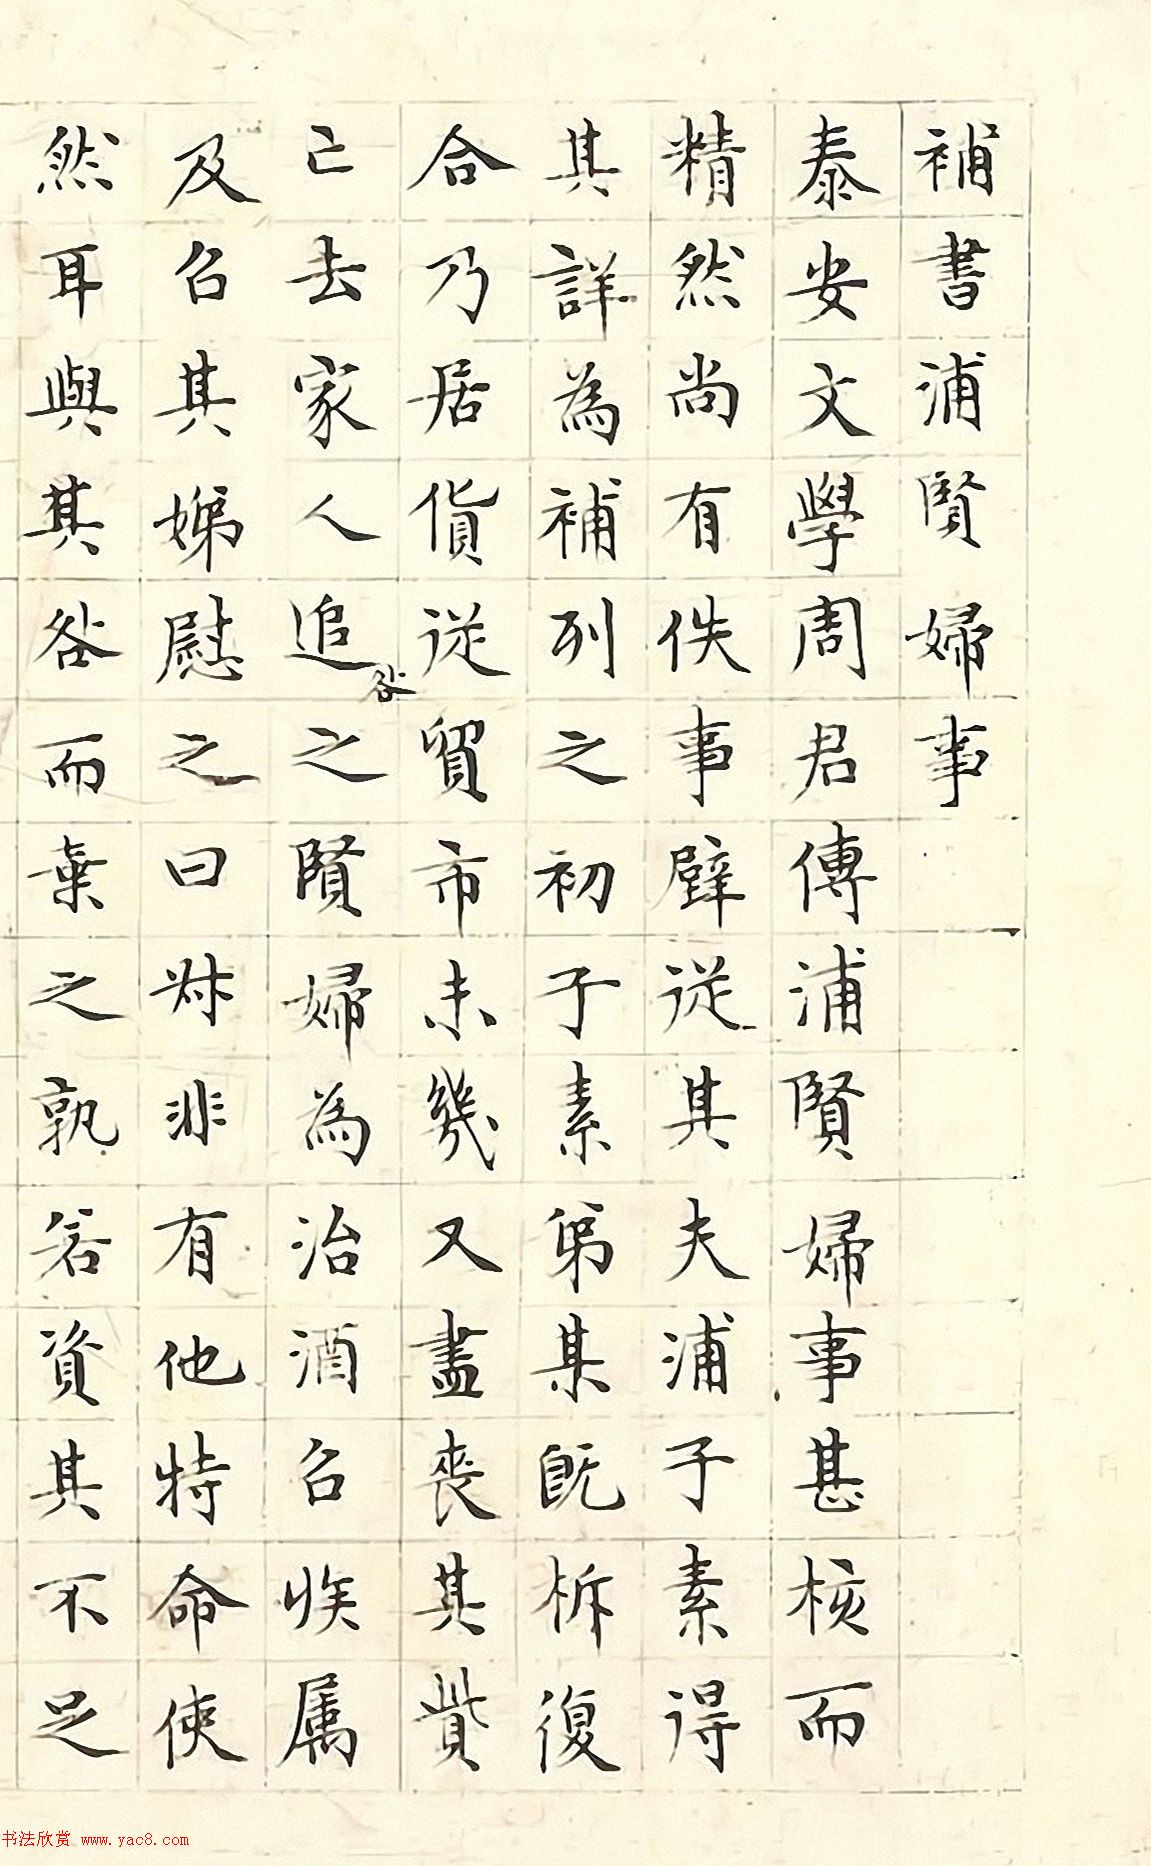 補書浦賢婦事
泰安文學周君傳浦賢婦事甚核而
精然尚有佚事璧從其夫浦子素得
其詳為補列之初子素弟某既柝復
合乃居貨從貿市未幾又盡喪其貲
亡去家人追咎之賢婦為治酒召族属
及召其娣慰之曰叔非有他特命使
然耳與其咎而棄之孰若資其不足
书法欣赏 www.yac8.com